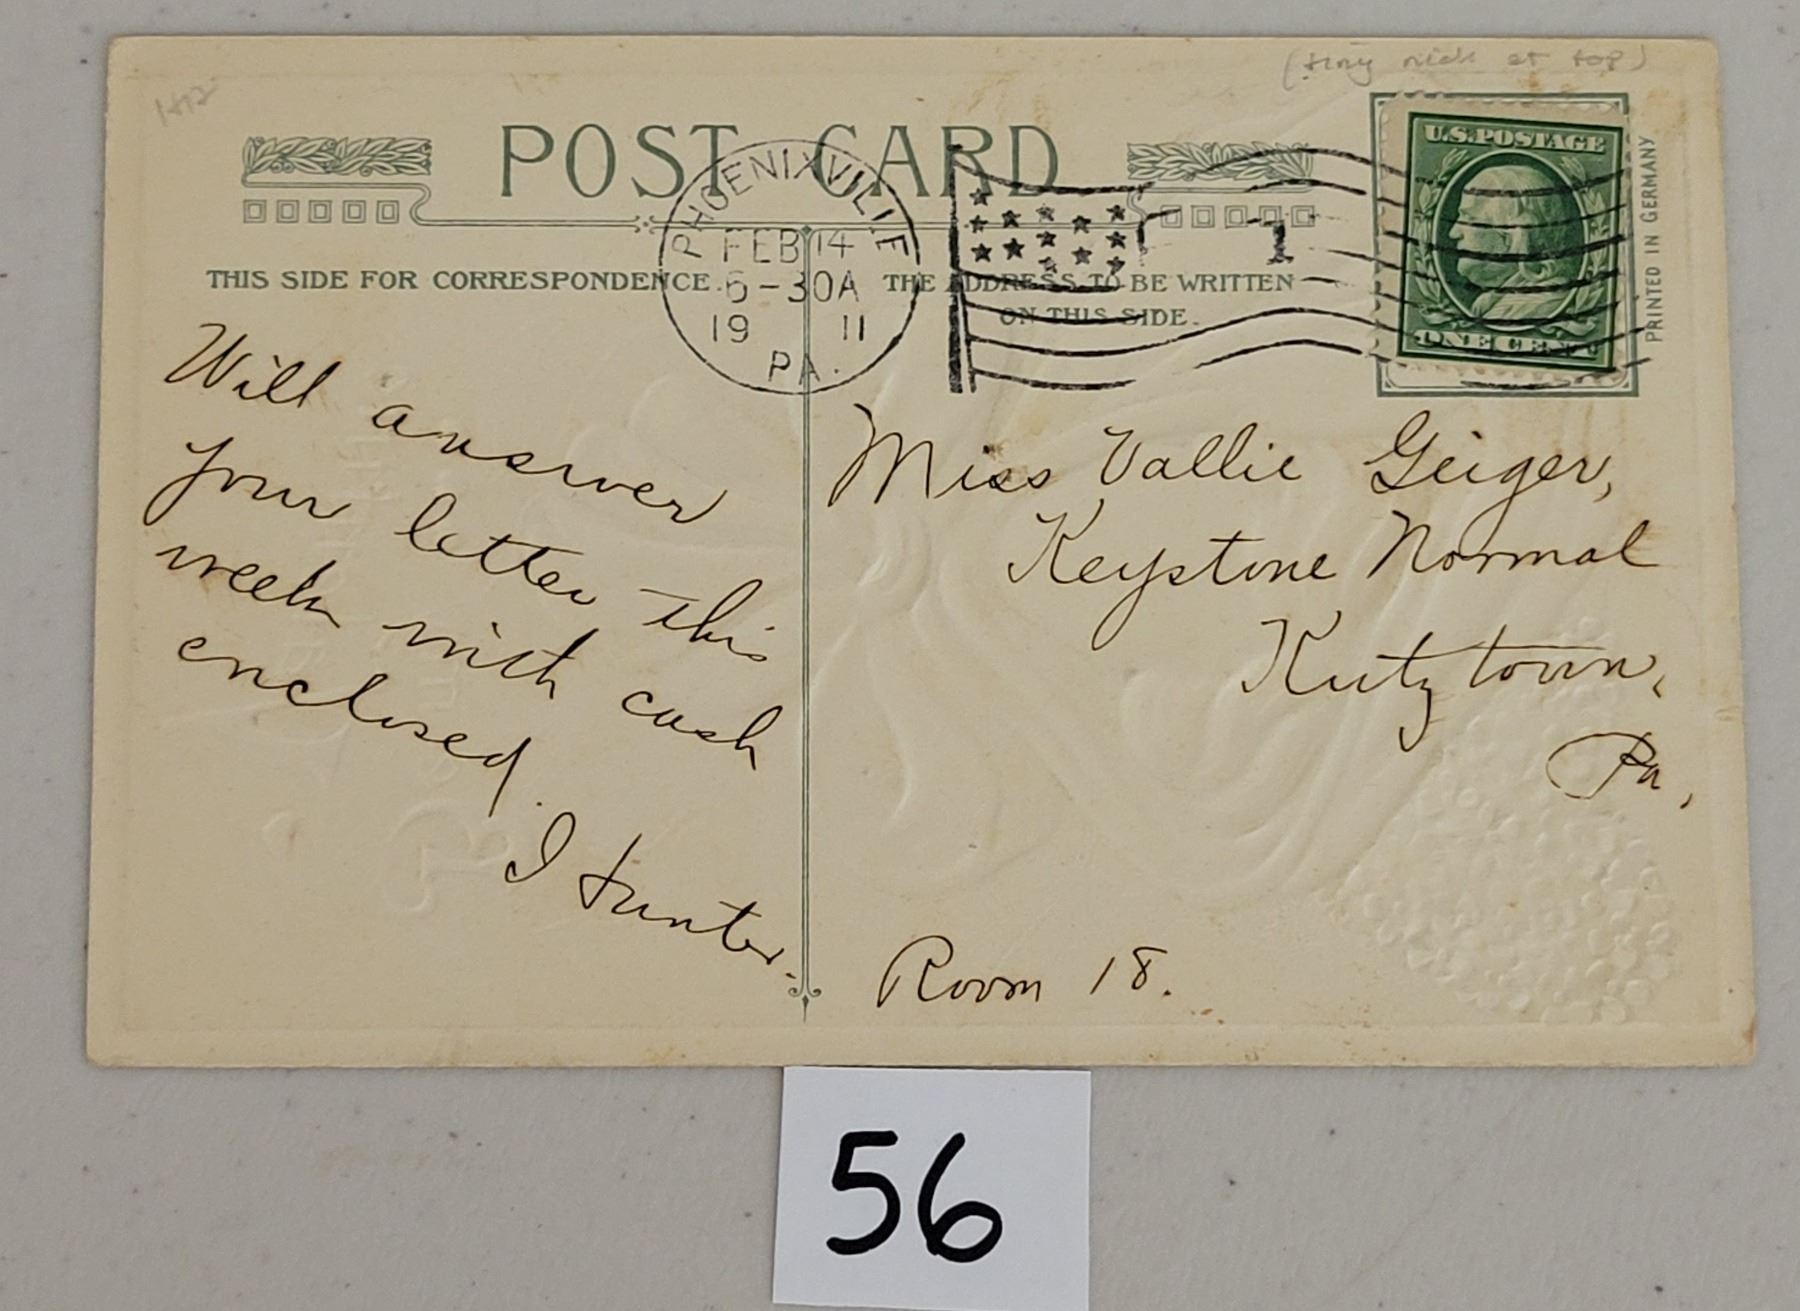 (tiny nick at top)
POST CARD
PHOENIXVILLE
FEB 14
6-30A
19 11
PA.
1
U.S. POSTAGE
ONE CENT
PRINTED IN GERMANY
THIS SIDE FOR CORRESPONDENCE.
THE ADDRESS TO BE WRITTEN
ON THIS SIDE.
Will answer
your letter this
week with cash
enclosed.
I Hunter.
Miss Vallie Geiger,
Keystone Normal
Kutztown,
Pa,
Room 18.
56